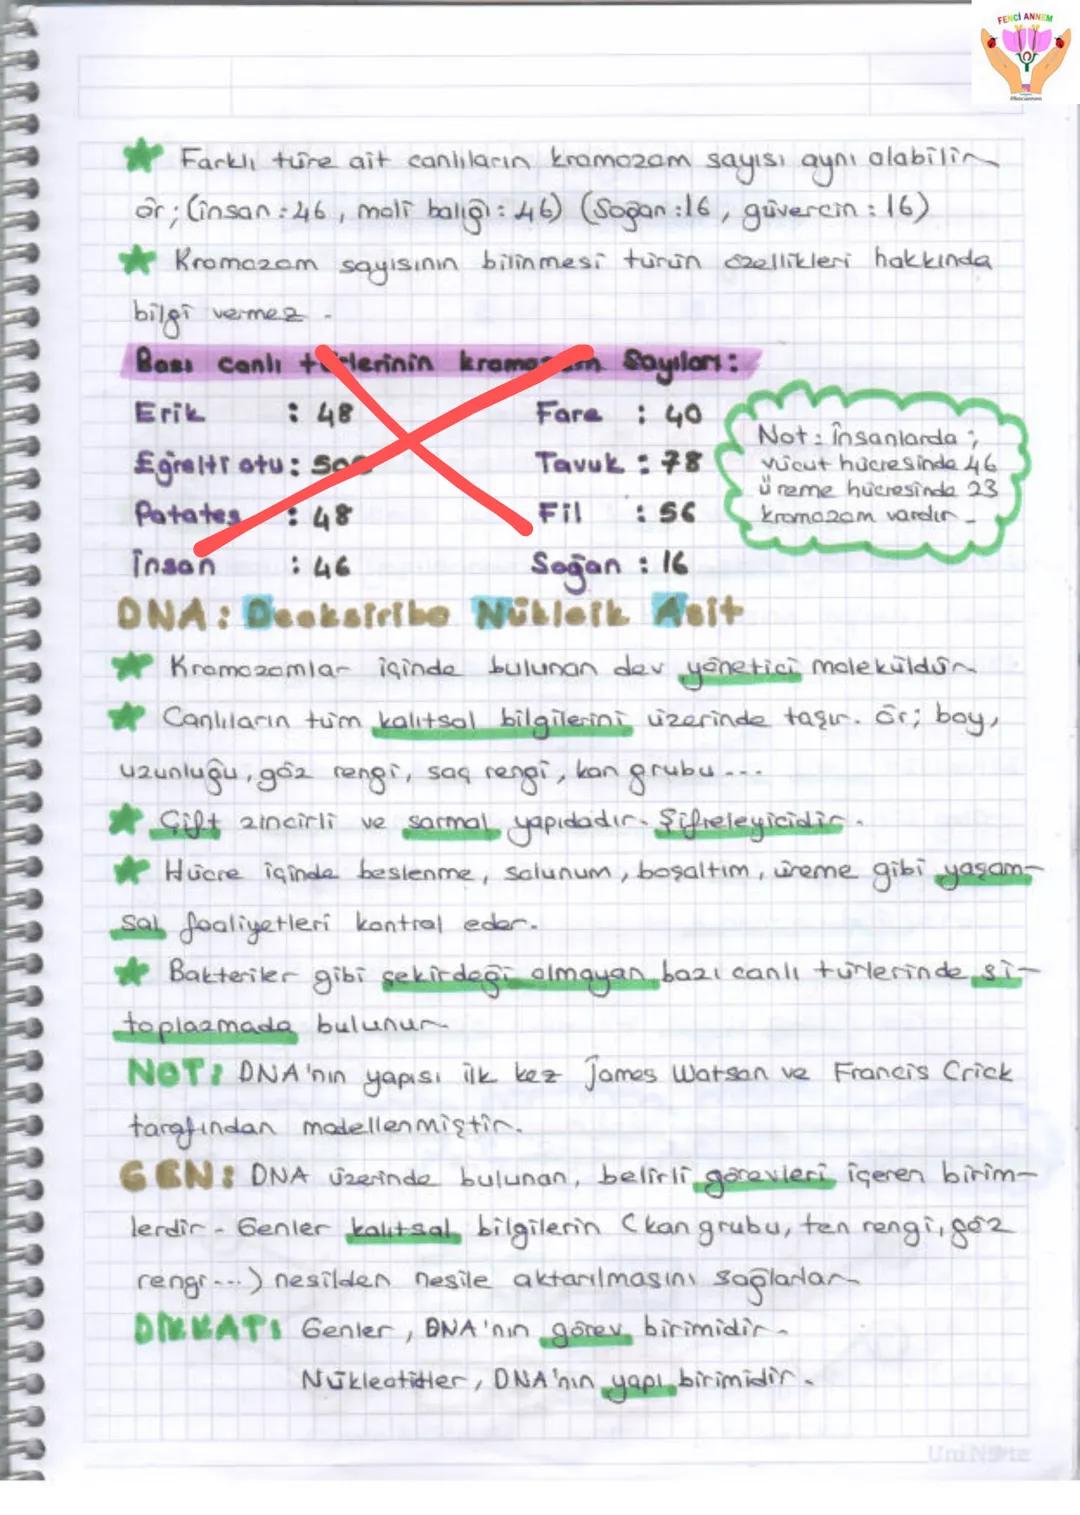 FENCİ ANNEM
Farklı türe ait canlıların kromozom sayısı aynı olabilir
ör; (insan : 46, moli balığı : 46) (Soğan : 16, güvercin : 16)
Kromozom sayısının bilinmesi türün özellikleri hakkında
bilgi vermez.
Bazı canlı türlerinin kromozom Sayıları:
Erik : 48 Fare : 40
Eğrelti otu : 500 Tavuk : 78
Patates : 48 Fil : 56
İnsan : 46 Soğan : 16
Not : İnsanlarda ;
vücut hücresinde 46
üreme hücresinde 23
kromozom vardır.
DNA : Deoksiribo Nükleik Asit
Kromozomlar içinde bulunan dev yönetici moleküldür.
Canlıların tüm kalıtsal bilgilerini üzerinde taşır. ör; boy,
uzunluğu, göz rengi, saç rengi, kan grubu...
Çift zincirli ve sarmal yapıdadır. Şifreleyicidir.
Hücre içinde beslenme, solunum, boşaltım, üreme gibi yaşam-
sal faaliyetleri kontrol eder.
Bakteriler gibi çekirdeği olmayan bazı canlı türlerinde si-
toplazmada bulunur.
NOT : DNA'nın yapısı ilk kez James Watson ve Francis Crick
tarafından modellenmiştir.
GEN : DNA üzerinde bulunan, belirli görevleri içeren birim-
lerdir. Genler kalıtsal bilgilerin (kan grubu, ten rengi, göz
rengi...) nesilden nesile aktarılmasını sağlarlar.
DİKKAT : Genler, DNA'nın görev birimidir.
Nükleotidler, DNA'nın yapı birimidir.